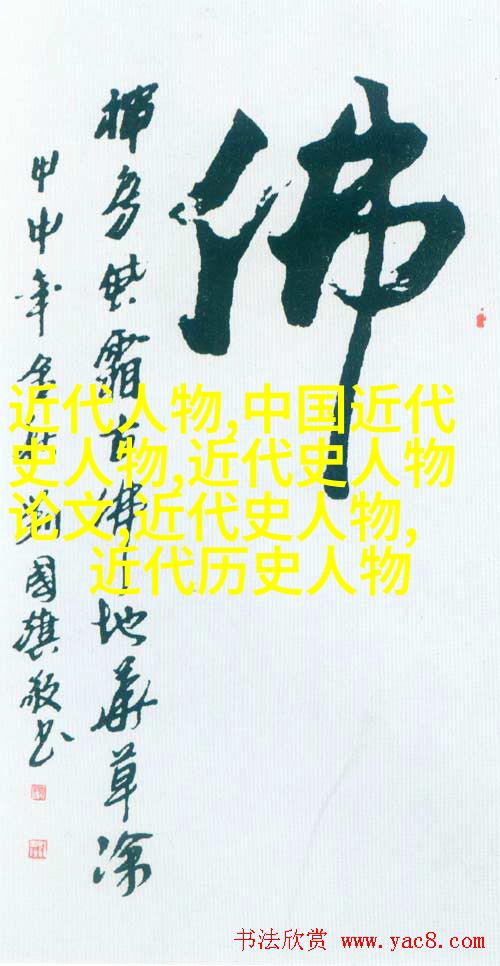 佛
霜首佛 地華草
甲申年金秋劉國旗敬书
近代人物,中国近代
史人物,近代史人物
论文,近代史人物,
近代历史人物
书法欣赏 www.yac8.com